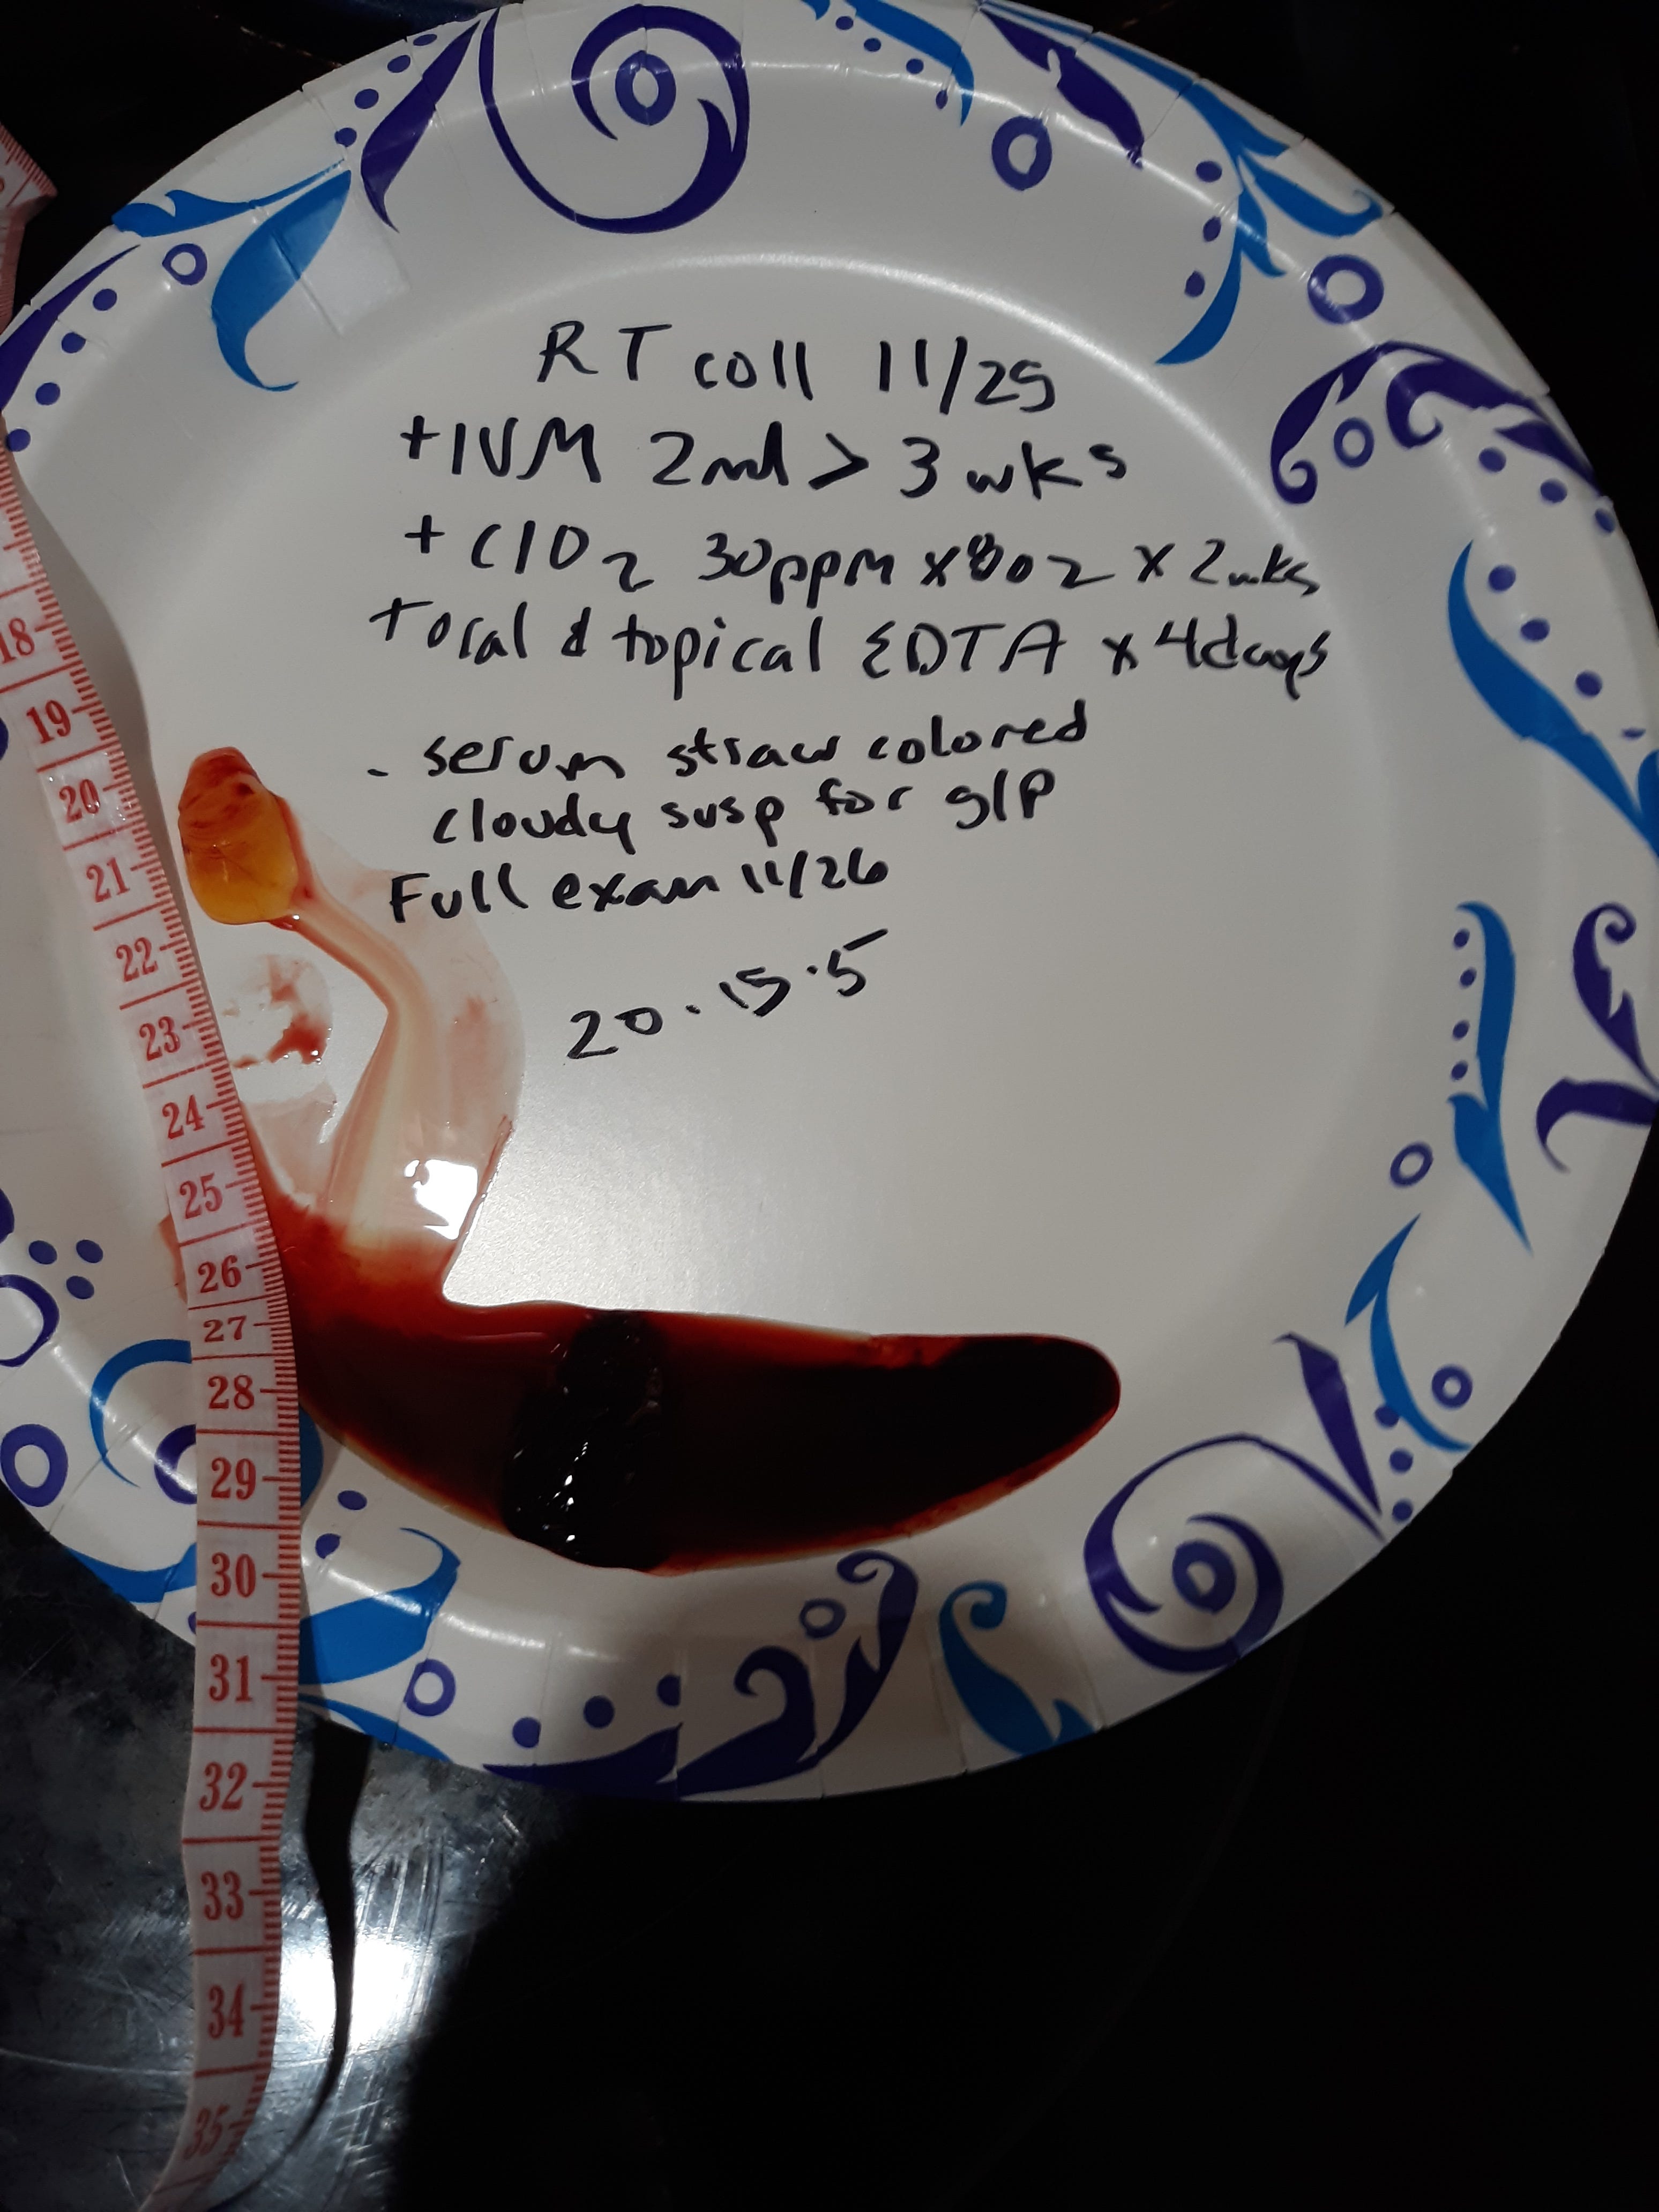 RT coll 11/25
+IVM 2ml > 3 wks
+ ClO2 30ppm x8oz x 2wks
+oral & topical EDTA x 4days
- serum straw colored
cloudy susp for glp
Full exam 11/26
20.15.5
18
19
20
21
22
23
24
25
26
27
28
29
30
31
32
33
34
35